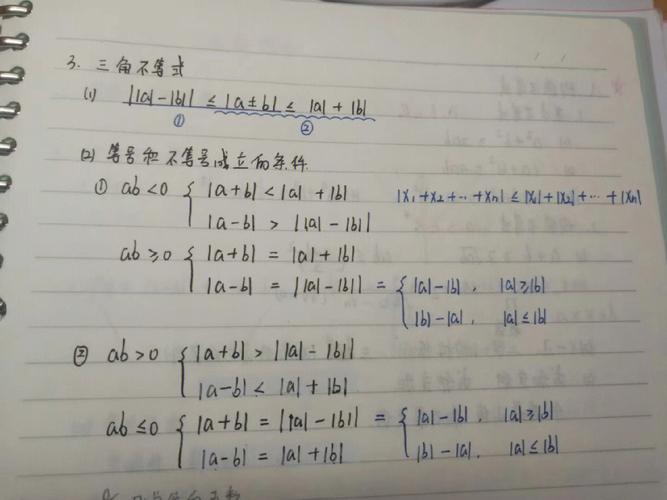 3. 三角不等式
(1) ||a|-|b|| ≤ |a±b| ≤ |a|+|b|
① ②
(2) 等号和不等号成立的条件
① ab<0 { |a+b| < |a|+|b| |x₁+x₂+…+xₙ| ≤ |x₁|+|x₂|+…+|xₙ|
|a-b| > ||a|-|b||
ab≥0 { |a+b| = |a|+|b|
|a-b| = ||a|-|b|| = { |a|-|b|, |a|≥|b|
|b|-|a|, |a|≤|b|
② ab>0 { |a+b| > ||a|-|b||
|a-b| < |a|+|b|
ab≤0 { |a+b| = ||a|-|b|| = { |a|-|b|, |a|≥|b|
|a-b| = |a|+|b| |b|-|a|, |a|≤|b|